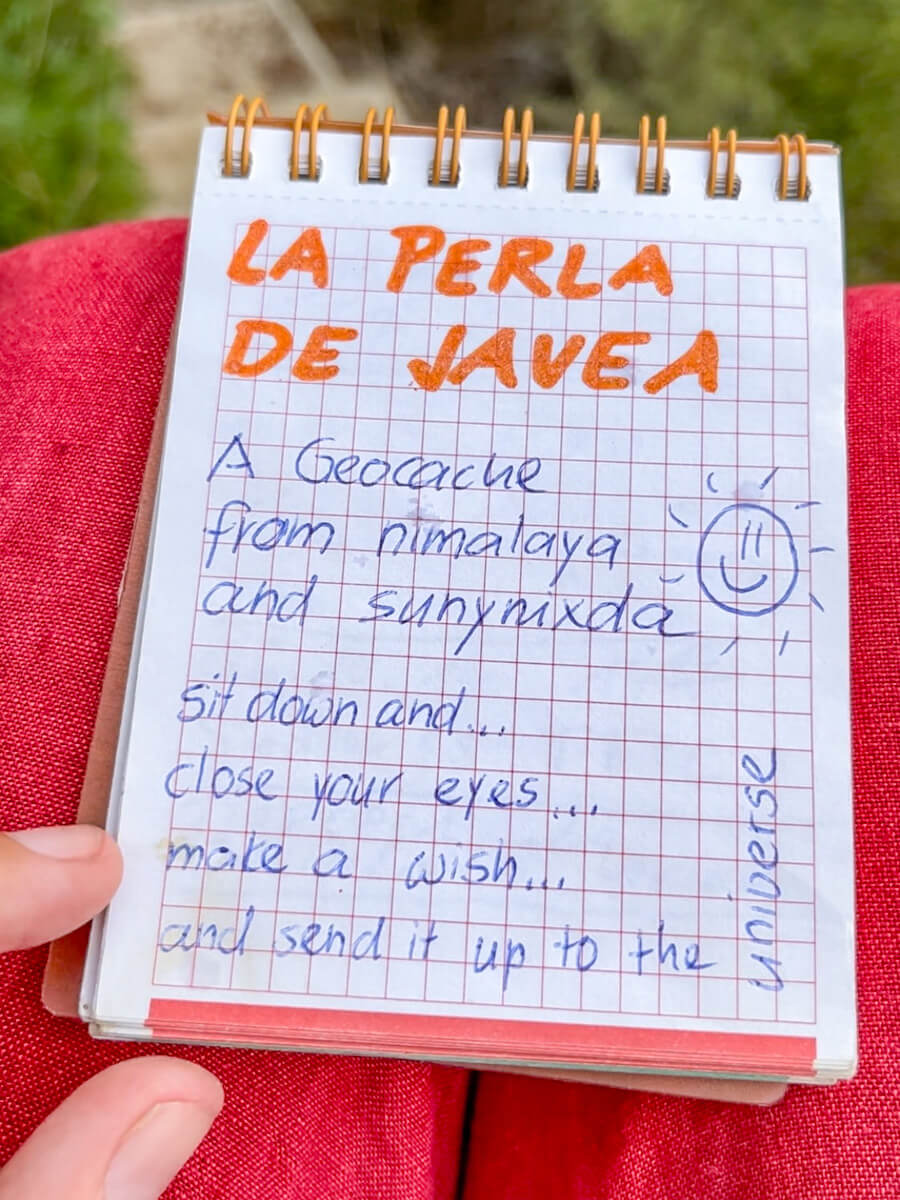 LA PERLA
DE JAVEA
A Geocache
from nimalaya
and sunynixda
sit down and...
close your eyes...
make a wish...
and send it up to the
universe